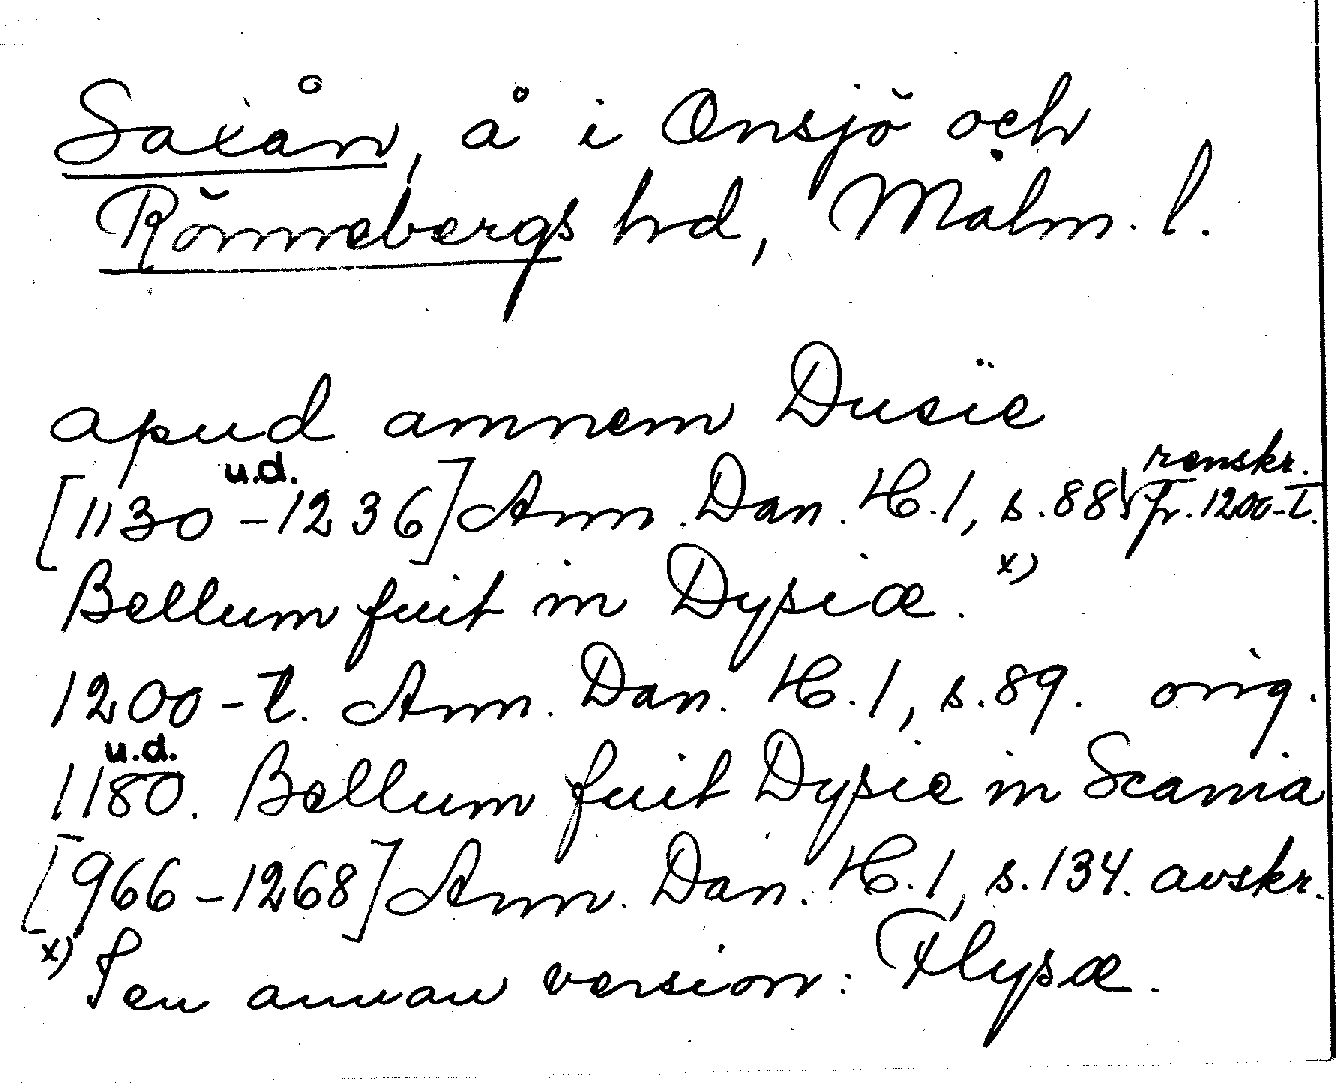 Saxån, å i Onsjö och
Rönnebergs hd, Malm. l.
apud amnem Dusie
u.d. renskr.
[1130-1236] Ann. Dan. H. 1, s. 88 fr. 1200-t.
Bellum fuit in Dysiæ. x)
1200-t. Ann. Dan. H. 1, s. 89. orig.
u.d.
1180. Bellum fuit Dysie in Scania
[966-1268] Ann. Dan. H. 1, s. 134. avskr.
x) I en annan version: Flysæ.